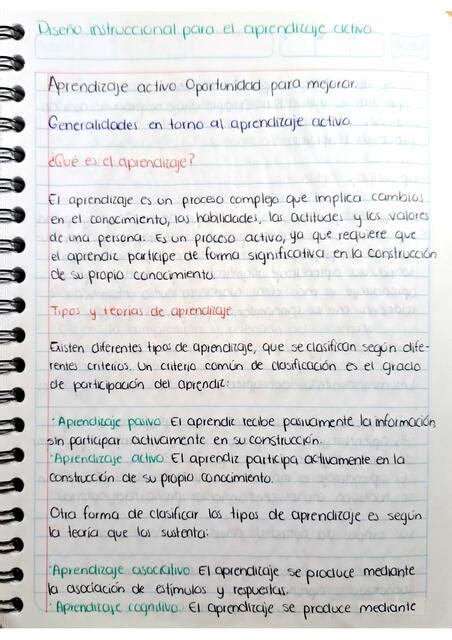 Diseño instruccional para el aprendizaje activo.
Aprendizaje activo. Oportunidad para mejorar.
Generalidades en torno al aprendizaje activo.
¿Qué es el aprendizaje?
El aprendizaje es un proceso complejo que implica cambios
en el conocimiento, las habilidades, las actitudes y los valores
de una persona. Es un proceso activo, ya que requiere que
el aprendiz participe de forma significativa en la construcción
de su propio conocimiento.
Tipos y teorías de aprendizaje
Existen diferentes tipos de aprendizaje, que se clasifican según dife-
rentes criterios. Un criterio común de clasificación es el grado
de participación del aprendiz:
· Aprendizaje pasivo: El aprendiz recibe pasivamente la información
sin participar activamente en su construcción.
· Aprendizaje activo: El aprendiz participa activamente en la
construcción de su propio conocimiento.
Otra forma de clasificar los tipos de aprendizaje es según
la teoría que los sustenta:
· Aprendizaje asociativo: El aprendizaje se produce mediante
la asociación de estímulos y respuestas.
· Aprendizaje cognitivo: El aprendizaje se produce mediante